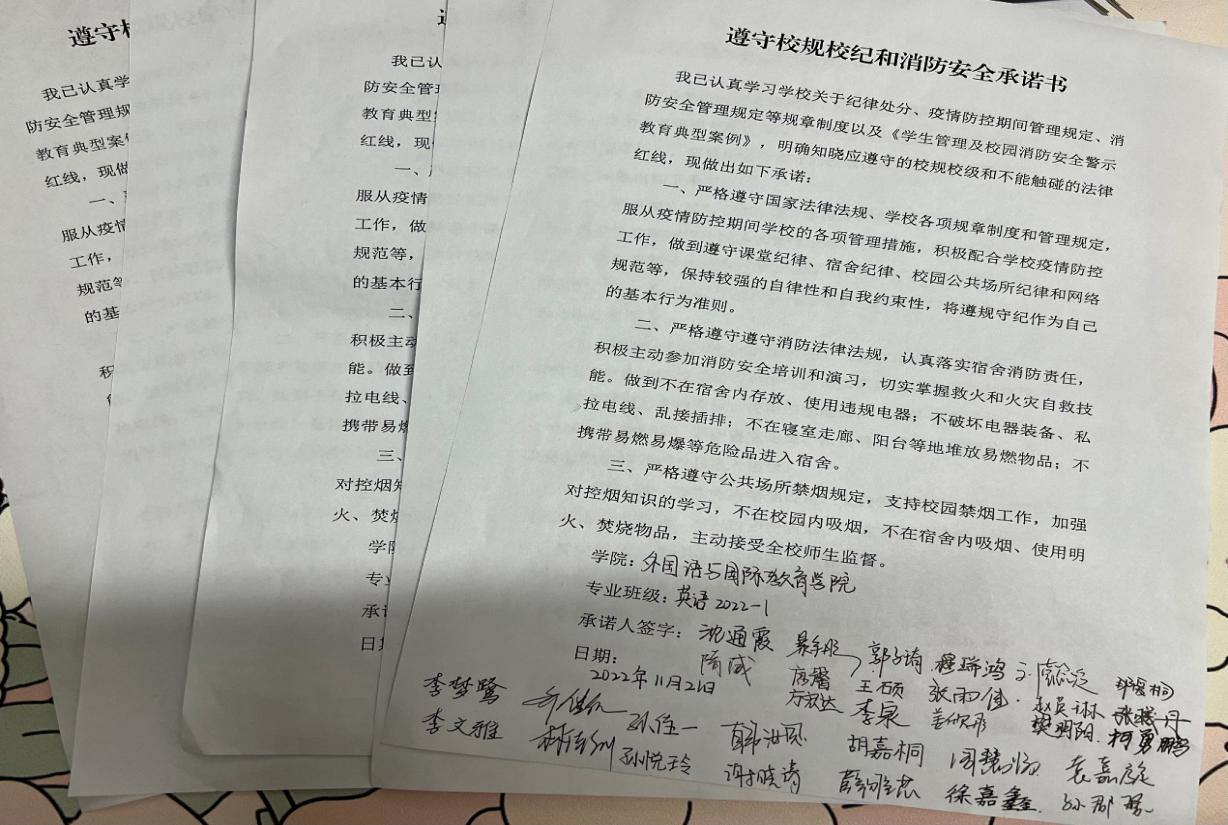 遵守校规校纪和消防安全承诺书
我已认真学习学校关于纪律处分、疫情防控期间管理规定、消
防安全管理规定等规章制度以及《学生管理及校园消防安全警示
教育典型案例》，明确知晓应遵守的校规校级和不能触碰的法律
红线，现做出如下承诺：
一、严格遵守国家法律法规、学校各项规章制度和管理规定，
服从疫情防控期间学校的各项管理措施，积极配合学校疫情防控
工作，做到遵守课堂纪律、宿舍纪律、校园公共场所纪律和网络
规范等，保持较强的自律性和自我约束性，将遵规守纪作为自己
的基本行为准则。
二、严格遵守遵守消防法律法规，认真落实宿舍消防责任，
积极主动参加消防安全培训和演习，切实掌握救火和火灾自救技
能。做到不在宿舍内存放、使用违规电器；不破坏电器装备、私
拉电线、乱接插排；不在寝室走廊、阳台等地堆放易燃物品；不
携带易燃易爆等危险品进入宿舍。
三、严格遵守公共场所禁烟规定，支持校园禁烟工作，加强
对控烟知识的学习，不在校园内吸烟，不在宿舍内吸烟、使用明
火、焚烧物品，主动接受全校师生监督。
学院：外国语与国际教育学院
专业班级：英语2022-1
承诺人签字：沈通霞 郭子琦 穆瑞鸿
日期： 隋彧 唐馨 王硕 张雨佳 赵英琳
2022年11月21日 方敖达 李泉 樊明阳 柯勇鹏
李梦鹭 孙佳一 胡嘉桐 袁嘉旋
李文雅 孙悦玲 谢晓涛 徐嘉鑫
遵守
我已认真学
防安全管理规
教育典型案例
红线，现做
一、
服从疫情
工作，
规范等
的基
我已
防安全管
教育典型
红线，现
一、
服从疫情
工作，做
规范等，
的基本行
二、
积极主动
能。做到
拉电线、
携带易燃
三、
对控烟知
火、焚烧
学院
专业
承诺
日期